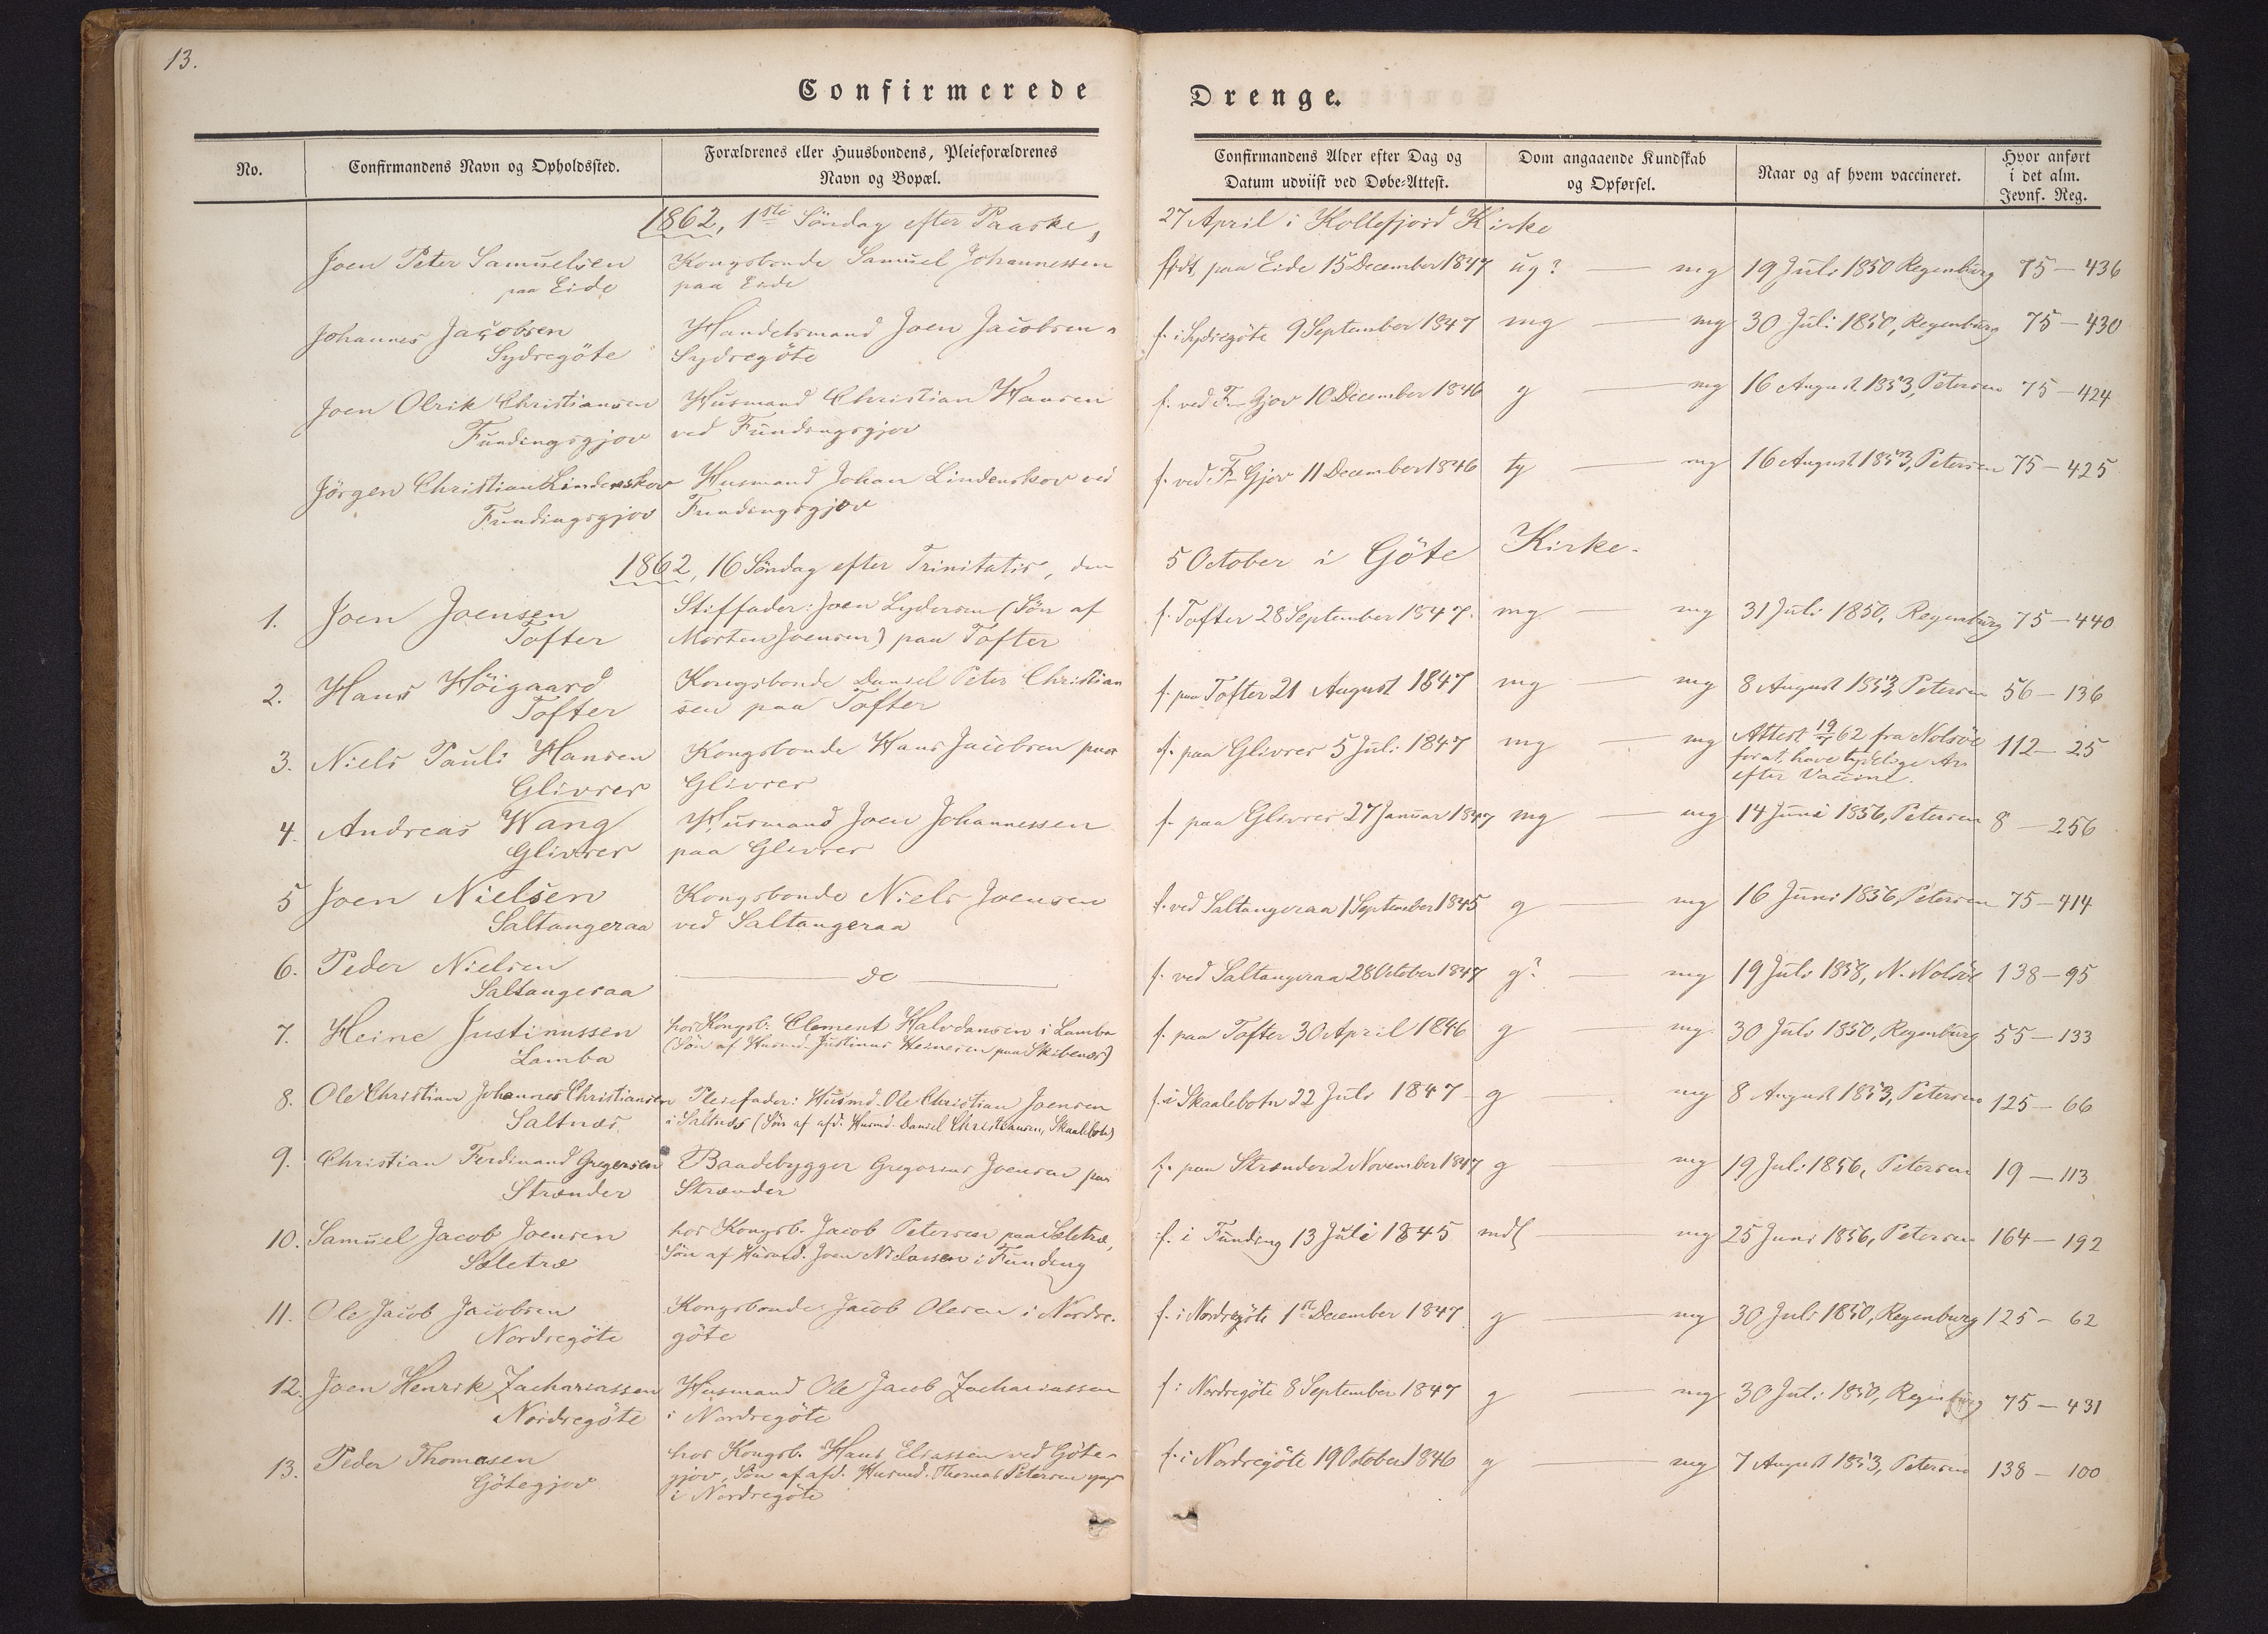 13.
Confirmerede Drenge.
No.
Confirmandens Navn og Opholdssted.
Forældrenes eller Huusbondens, Pleieforældrenes
Navn og Bopæl.
Confirmandens Alder efter Dag og
Datum udviist ved Døbe-Attest.
Dom angaaende Kundskab
og Opførsel.
Naar og af hvem vaccineret.
Hvor anført
i det alm.
Jevnf. Reg.
1862, 1ste Söndag efter Paaske, 27 April i Kollefjord Kirke
Joen Peter Samuelsen
paa Eide
Kongsbonde Samuel Johannessen
paa Eide
födt paa Eide 15 December 1847
ug? — mg
19 Juli 1850 Regenburg
75 — 436
Johannes Jacobsen
Sydregöte
Handelsmand Joen Jacobsen
Sydregöte
f. i Sydregöte 9 September 1847
mg — mg
30 Juli 1850, Regenburg
75 — 430
Joen Olrik Christiansen
Fundingsgjov
Husmand Christian Hansen
ved Fundingsgjov
f. ved F Gjov 10 December 1846
g — mg
16 August 1853, Petersen
75 — 424
Jörgen Christian Lindenskov
Fundingsgjov
Husmand Johan Lindenskov ved
Fundingsgjov
f. ved F Gjov 11 December 1846
tg — mg
16 August 1853, Petersen
75 — 425
1862, 16 Söndag efter Trinitatis, den 5 October i Göte Kirke.
1. Joen Joensen
Tofter
Stiffader: Joen Lydersen (Sön af
Morten Joensen) paa Tofter
f. Tofter 28 September 1847.
mg — mg
31 Juli 1850, Regenburg
75 — 440
2. Hans Höigaard
Tofter
Kongsbonde Daniel Peter Christian
sen paa Tofter
f. paa Tofter 21 August 1847
mg — mg
8 August 1853, Petersen
56 — 136
3. Niels Pauli Hansen
Glivrer
Kongsbonde Hans Jacobsen paa
Glivrer
f. paa Glivrer 5 Juli 1847
mg — mg
Attest 19/7 62 fra Nolsöe
for at have tydelige Ar
efter Vaccine.
112 — 25
4. Andreas Wang
Glivrer
Husmand Joen Johannessen
paa Glivrer
f. paa Glivrer 27 Januar 1847
mg — mg
14 Juni 1856, Petersen
8 — 256
5 Joen Nielsen
Saltangeraa
Kongsbonde Niels Joensen
ved Saltangeraa
f. ved Saltangeraa 1 September 1845
g — mg
16 Juni 1856, Petersen
75 — 414
6. Peder Nielsen
Saltangeraa
— do —
f. ved Saltangeraa 28 October 1847
g? — mg
19 Juli 1858, N. Nolsöe
138 — 95
7. Heine Justinussen
Lamba
hos Kongsb: Clement Halvdansen i Lamba
(Sön af Husmd. Justinus Heinesen paa Skibenæs)
f. paa Tofter 30 April 1846
g — mg
30 Juli 1850, Regenburg
55 — 133
8. Ole Christian Johannes Christiansen
Saltnæs
Pleiefader: Husmd. Ole Christian Joensen
i Saltnæs (Sön af afd. Husmd. Daniel Christiansen, Skaalebotn)
f. i Skaalebotn 22 Juli 1847
g — mg
8 August 1853, Petersen
125 — 66
9. Christian Ferdinand Gregersen
Strænder
Baadebygger Gregorius Joensen paa
Strænder
f. paa Strænder 2 November 1847
g — mg
19 Juli 1856, Petersen
19 — 113
10. Samuel Jacob Joensen
Sæletræ
hos Kongsb. Jacob Petersen paa Sæletræ,
Sön af Husmd. Joen Niclassen i Funding
f. i Funding 13 Juli 1845
mdl — mg
25 Juni 1856, Petersen
164 — 192
11. Ole Jacob Jacobsen
Nordregöte
Kongsbonde Jacob Olesen i Nordre-
göte
f. i Nordregöte 1ste December 1847
g — mg
30 Juli 1850, Regenburg
125 — 62
12. Joen Henrik Zachariassen
Nordregöte
Husmand Ole Jacob Zachariassen
i Nordregöte
f. i Nordregöte 8 September 1847
g — mg
30 Juli 1850, Regenburg
75 — 431
13. Peder Thomasen
Götegjov
hos Kongsb. Hans Eliassen ved Göte-
gjov, Sön af afd. Husmd. Thomas Petersen
i Nordregöte
f. i Nordregöte 19 October 1846
g — mg
7 August 1853, Petersen
138 — 100